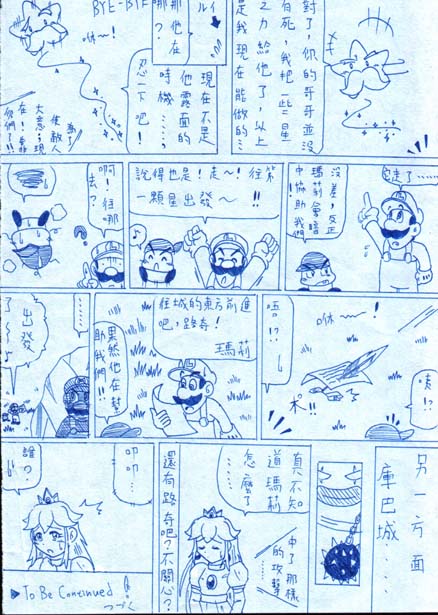 對了，你的哥哥並沒
有死，我把一些星
之力給他了，以上
是我現在能做的…
ルイ
那他在
哪？
現在不是
他露面的
時機……
忍一下吧！
BYE-BYE
咻～！
為了
使敵人
大意；現
沒差，反正
瑪莉會暗
中協助我們
說得也是！走～！往第
一顆星出發～！！
啊！往哪
去？
咦！？
咻～！
唔！？
往城的東方前進
吧，路奇！
瑪莉
果然他在幫
助我們！！
………
出發
了～
另一方面
庫巴城…
真不知
道瑪莉
怎麼了
……
中了那樣
的攻擊
還有路奇吧？不關心？
叩叩…
誰？
▶To Be Continued
つづく